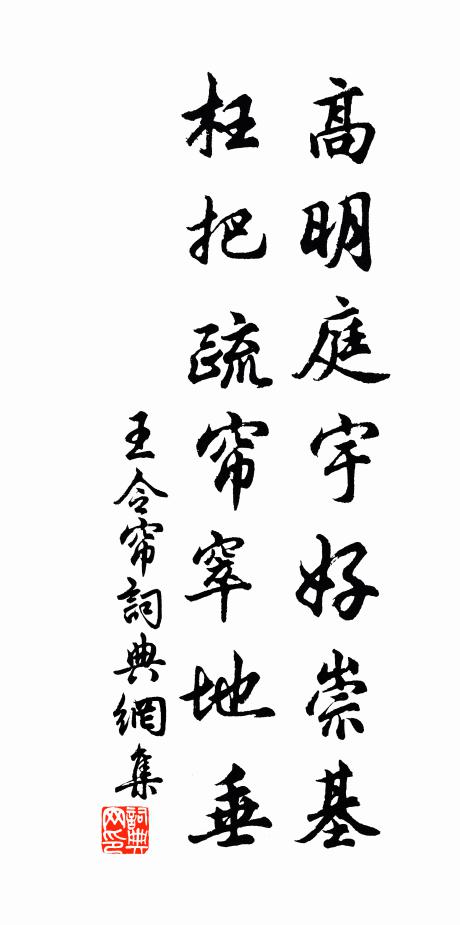 高明庭宇好崇基
枉把疏帘窣地垂
王令帘詞典網集
詞典网印